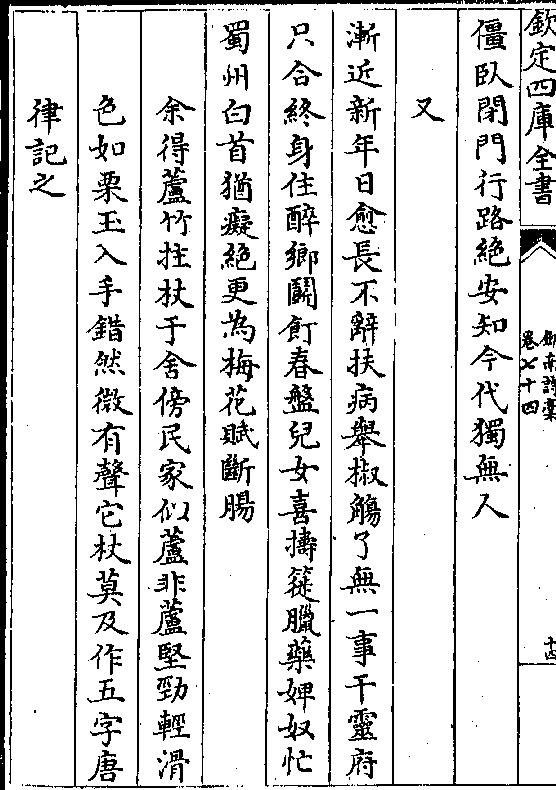 欽定四庫全書
劍南詩藁
卷七十四
十四
僵臥閉門行路絶安知今代獨無人
又
漸近新年日愈長不辭扶病舉椒觴了無一事干靈府
只合終身住醉鄉鬬飣春盤兒女喜擣簁臘藥婢奴忙
蜀州白首猶癡絶更為梅花賦斷腸
余得蘆竹拄杖于舍傍民家似蘆非蘆堅勁輕滑
色如栗玉入手錯然微有聲它杖莫及作五字唐
律記之